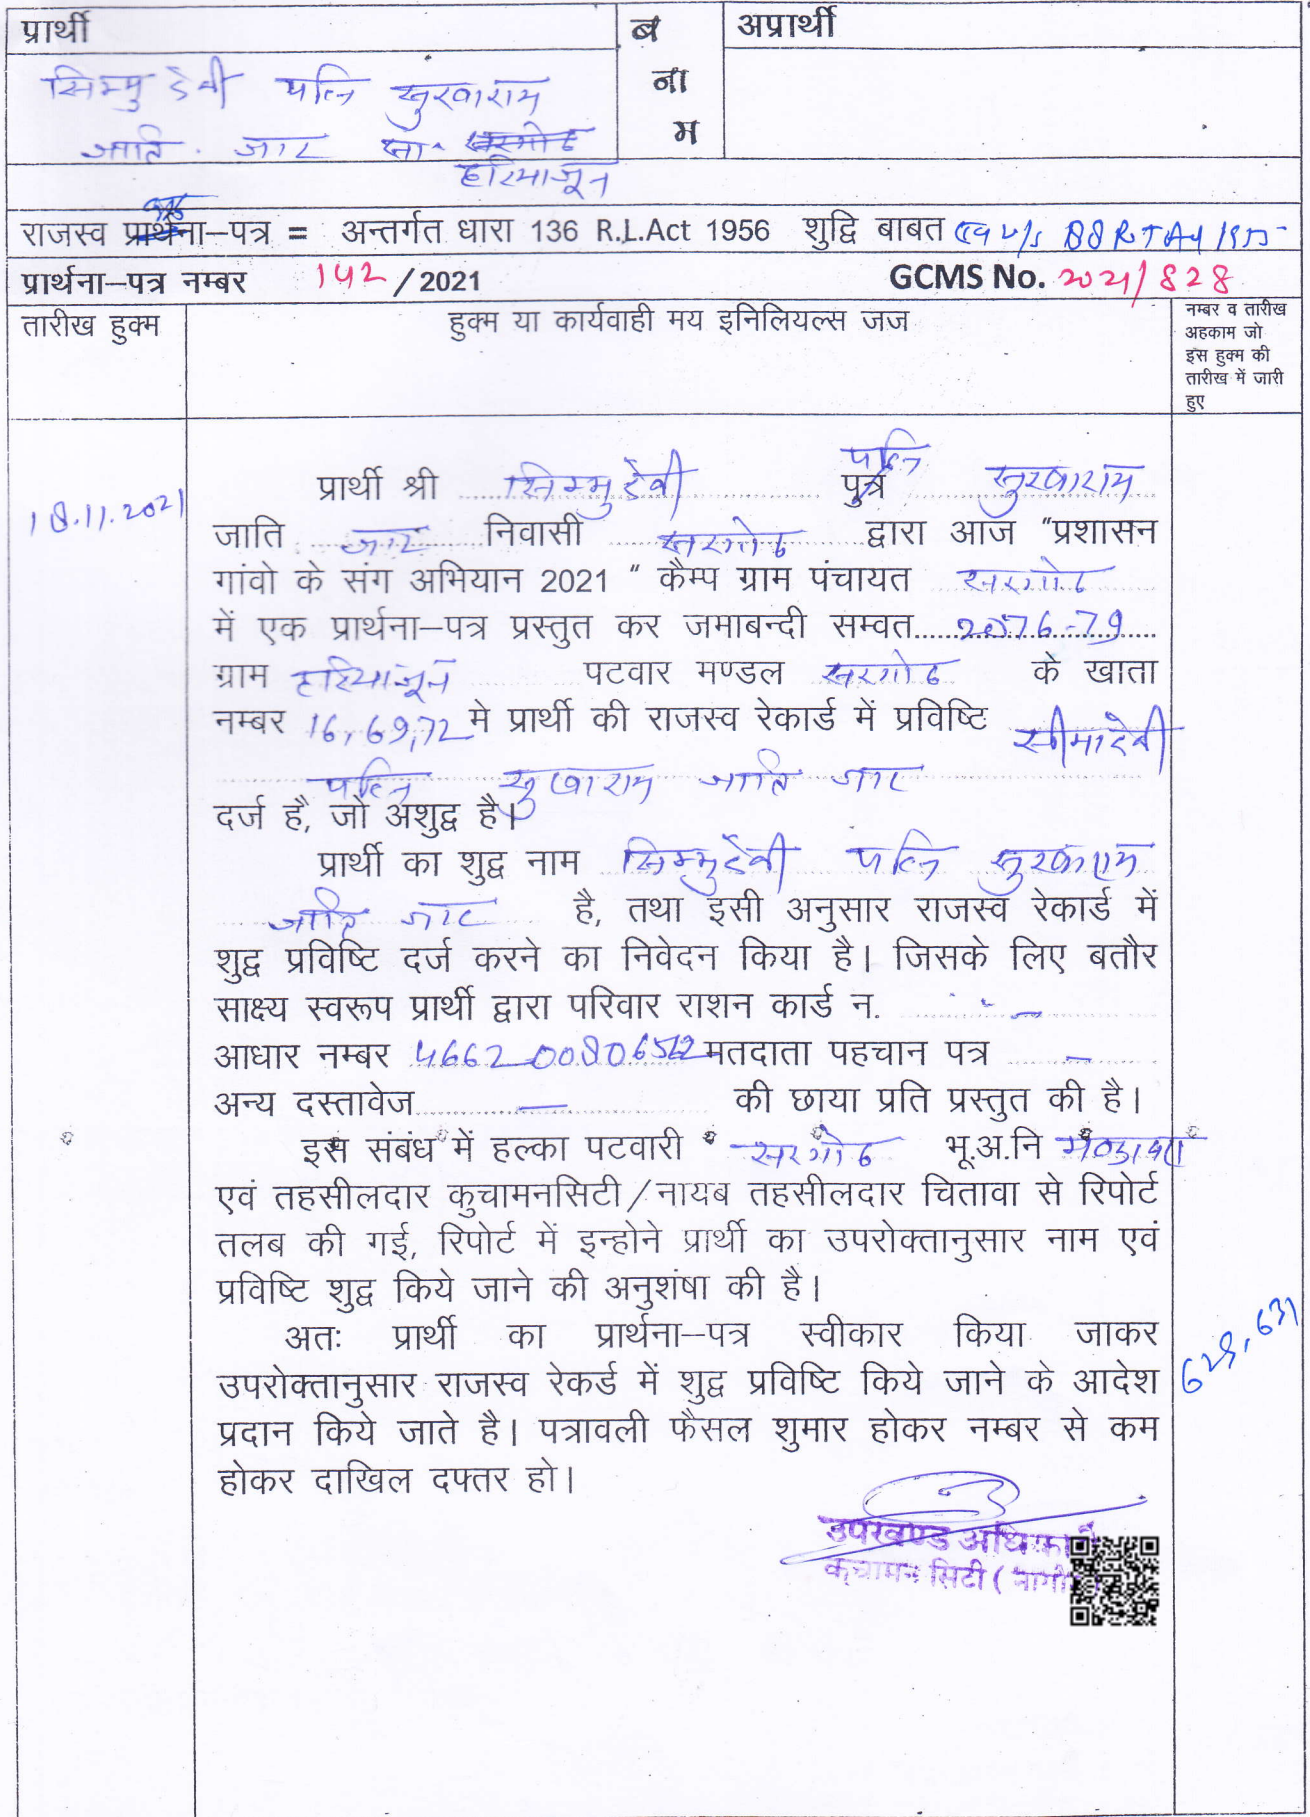 प्रार्थी
ब
ना
म
अप्रार्थी
सिम्मु देवी पत्नि सुखाराम
जाति. जाट सा. खरगोट
हरियाजून
राजस्व प्रार्थना–पत्र = अन्तर्गत धारा 136 R.L.Act 1956 शुद्वि बाबत एवं U/s 88 RTAct 1955
प्रार्थना–पत्र नम्बर 142 / 2021 GCMS No. 2021/828
तारीख हुक्म
हुक्म या कार्यवाही मय इनिलियल्स जज
नम्बर व तारीख
अहकाम जो
इस हुक्म की
तारीख में जारी
हुए
18.11.2021
पत्नि
प्रार्थी श्री सिम्मु देवी पुत्र सुखाराम
जाति जाट निवासी खरगोट द्वारा आज “प्रशासन
गांवो के संग अभियान 2021 “ कैम्प ग्राम पंचायत खरगोट
में एक प्रार्थना–पत्र प्रस्तुत कर जमाबन्दी सम्वत 2076-79
ग्राम हरियाजून पटवार मण्डल खरगोट के खाता
नम्बर 16,69,72 मे प्रार्थी की राजस्व रेकार्ड में प्रविष्टि सीमादेवी
पत्नि सुखाराम जाति जाट
दर्ज है, जो अशुद्व है।
प्रार्थी का शुद्व नाम सिम्मुदेवी पत्नि सुखाराम
जाति जाट है, तथा इसी अनुसार राजस्व रेकार्ड में
शुद्व प्रविष्टि दर्ज करने का निवेदन किया है। जिसके लिए बतौर
साक्ष्य स्वरूप प्रार्थी द्वारा परिवार राशन कार्ड न. –
आधार नम्बर मतदाता पहचान पत्र –
अन्य दस्तावेज – की छाया प्रति प्रस्तुत की है।
इस संबंध में हल्का पटवारी खरगोट भू.अ.नि
एवं तहसीलदार कुचामनसिटी/नायब तहसीलदार चितावा से रिपोर्ट
तलब की गई, रिपोर्ट में इन्होने प्रार्थी का उपरोक्तानुसार नाम एवं
प्रविष्टि शुद्व किये जाने की अनुशंषा की है।
अतः प्रार्थी का प्रार्थना–पत्र स्वीकार किया जाकर
उपरोक्तानुसार राजस्व रेकर्ड में शुद्व प्रविष्टि किये जाने के आदेश
प्रदान किये जाते है। पत्रावली फैसल शुमार होकर नम्बर से कम
होकर दाखिल दफ्तर हो।
629, 631
उपखण्ड अधिकारी
कुचामन सिटी ( नागौ